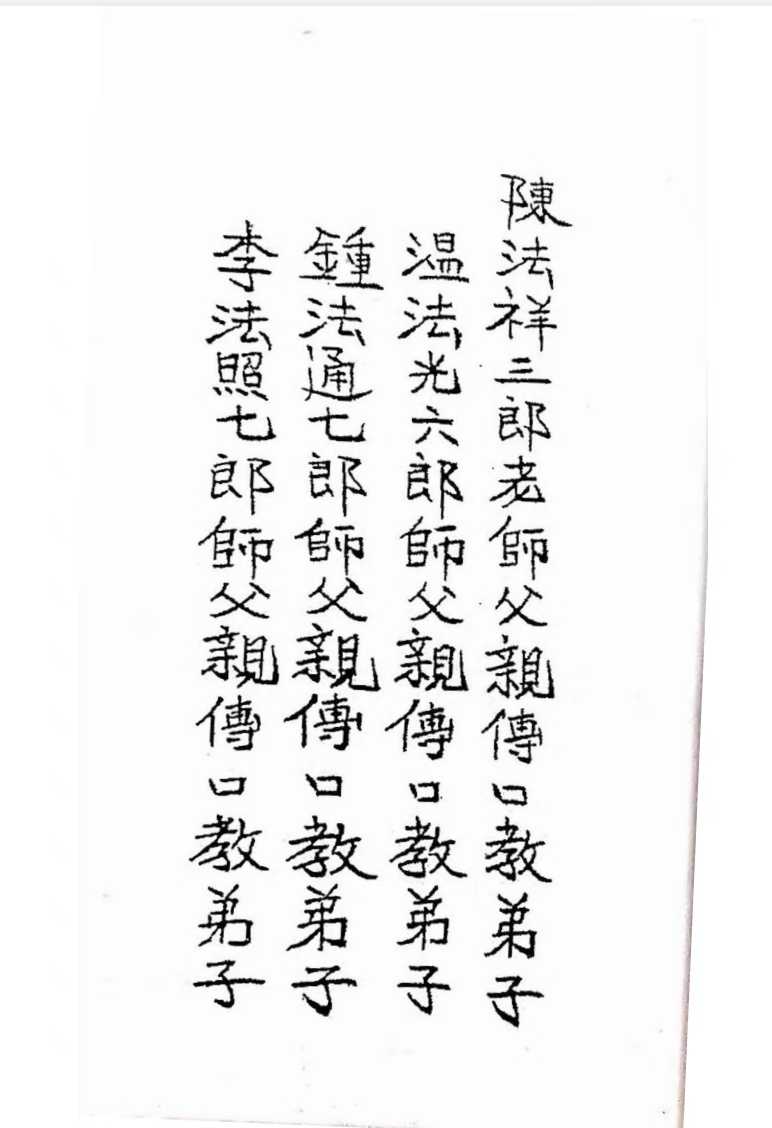 陳法祥三郎老師父親傳口教弟子
温法光六郎師父親傳口教弟子
鍾法通七郎師父親傳口教弟子
李法照七郎師父親傳口教弟子